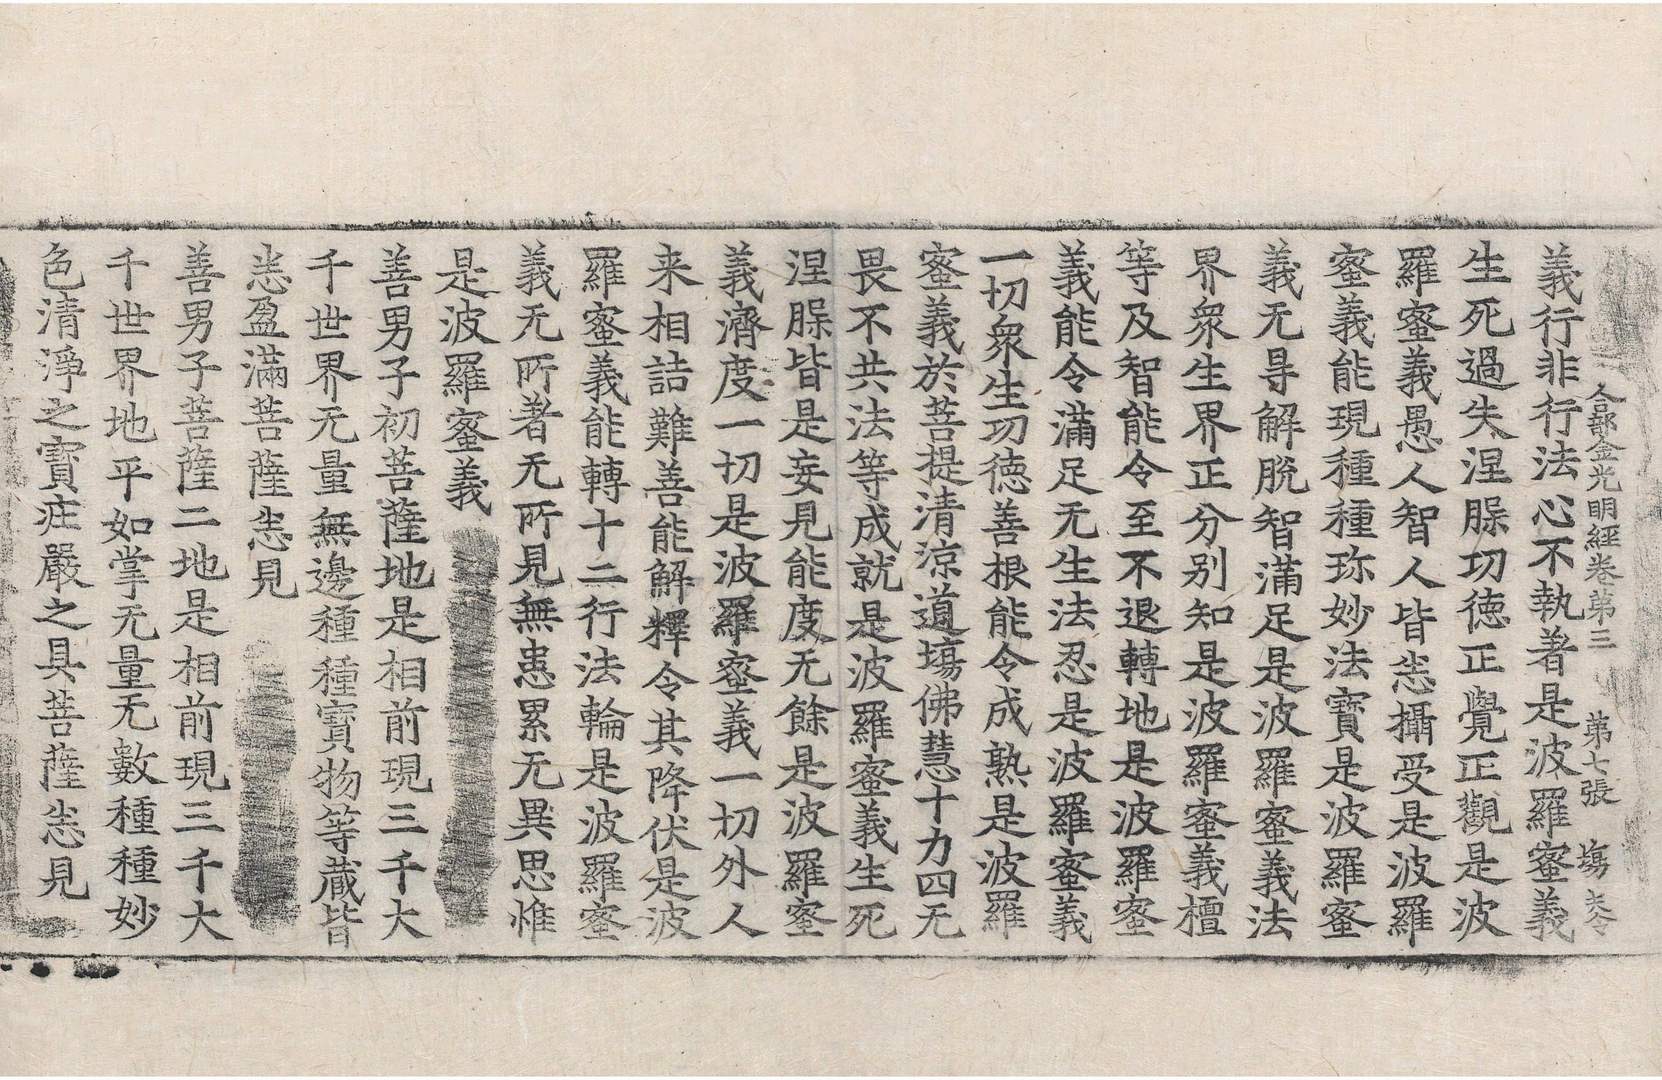 合部金光明經卷第三 第七張 塲
義行非行法心不執著是波羅蜜義
生死過失涅脲功徳正覺正觀是波
羅蜜義愚人智人皆恚攝受是波羅
蜜義能現種種珎妙法寶是波羅蜜
義无㝵解脫智滿足是波羅蜜義法
界衆生界正分别知是波羅蜜義檀
等及智能令至不退轉地是波羅蜜
義能令滿足无生法忍是波羅蜜義
一切衆生功德善根能令成熟是波羅
蜜義於菩提清涼道塲佛慧十力四无
畏不共法等成就是波羅蜜義生死
涅脲皆是妄見能度无餘是波羅蜜
義濟度一切是波羅蜜義一切外人
来相詰難善能解釋令其降伏是波
羅蜜義能轉十二行法輪是波羅蜜
義无所著无所見無恚累无異思惟
是波羅蜜義
善男子初菩薩地是相前現三千大
千世界无量無邊種種寶物等蔵皆
恚盈滿菩薩恚見
善男子菩薩二地是相前現三千大
千世界地平如掌无量无數種種妙
色清淨之寶庄嚴之具菩薩恚見